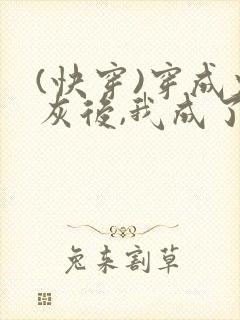 (快穿)穿成
灰後,我成了
兔来割草